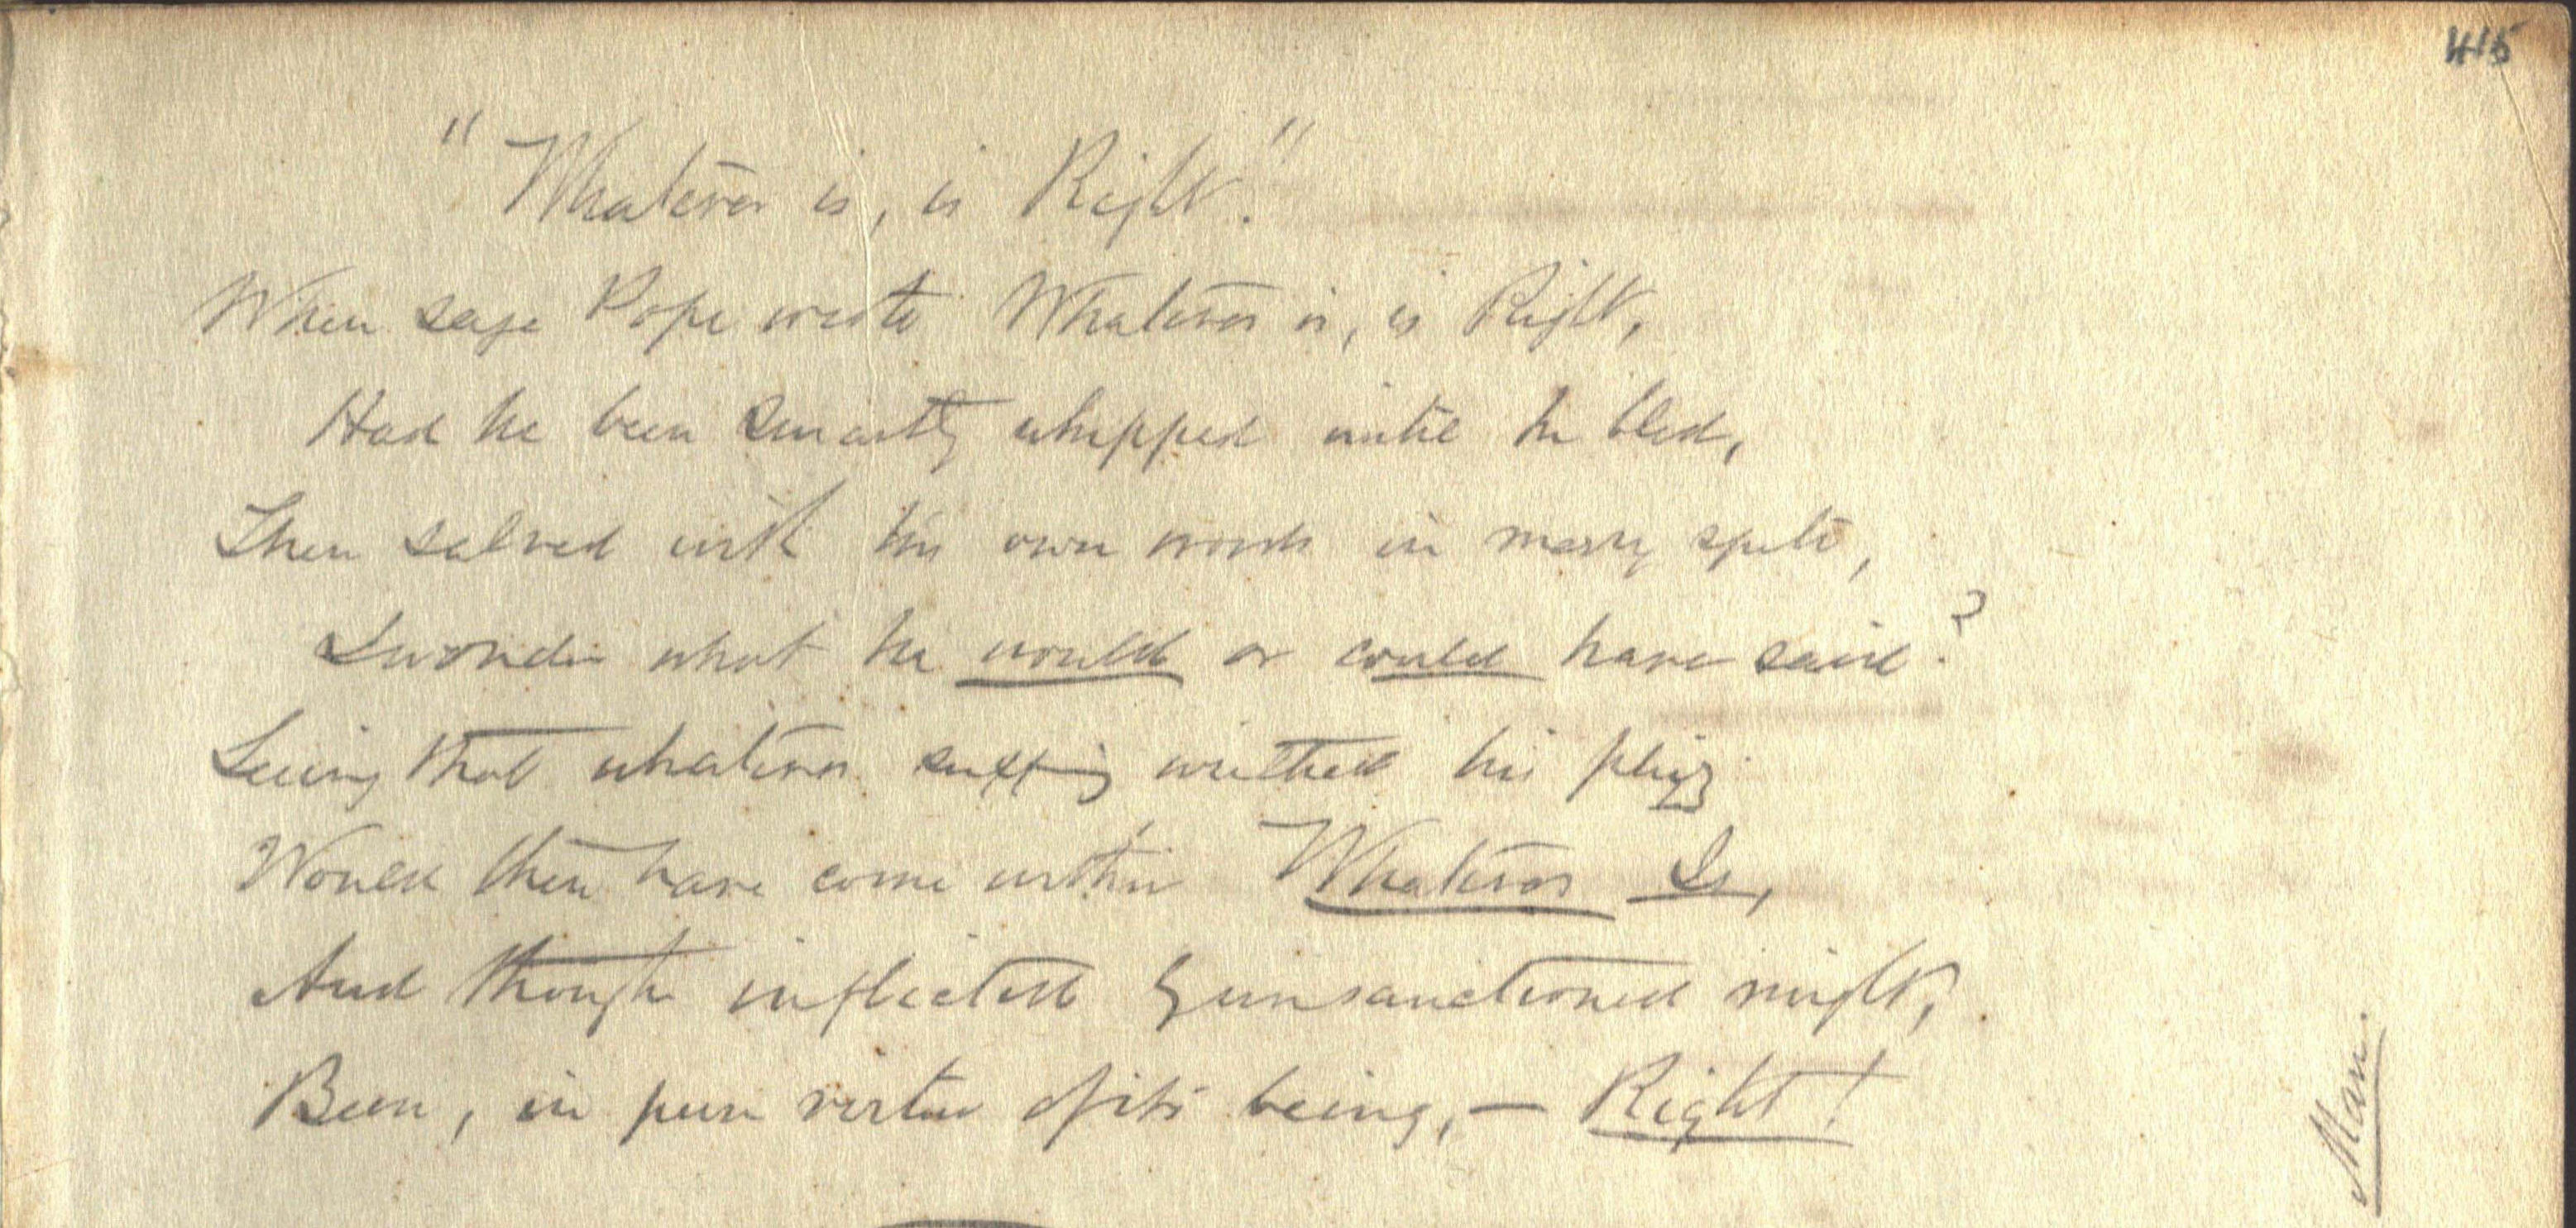 415
"Whatever is, is Right."
When sage Pope wrote Whatever is, is Right,
Had he been smartly whipped until he bled,
Then salved with his own words in merry spite,
I wonder what he would or could have said?
Seeing that whatever writhed his phiz
Would then have come within Whatever Is,
And though inflicted by unsanctioned might,
Been, in pure virtue of its being, — Right!
Man.